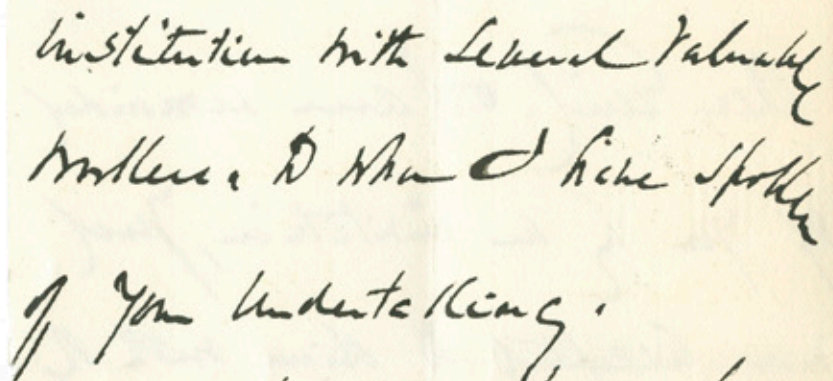 institution with several valuable
workers, to whom I have spoken
of your undertaking.